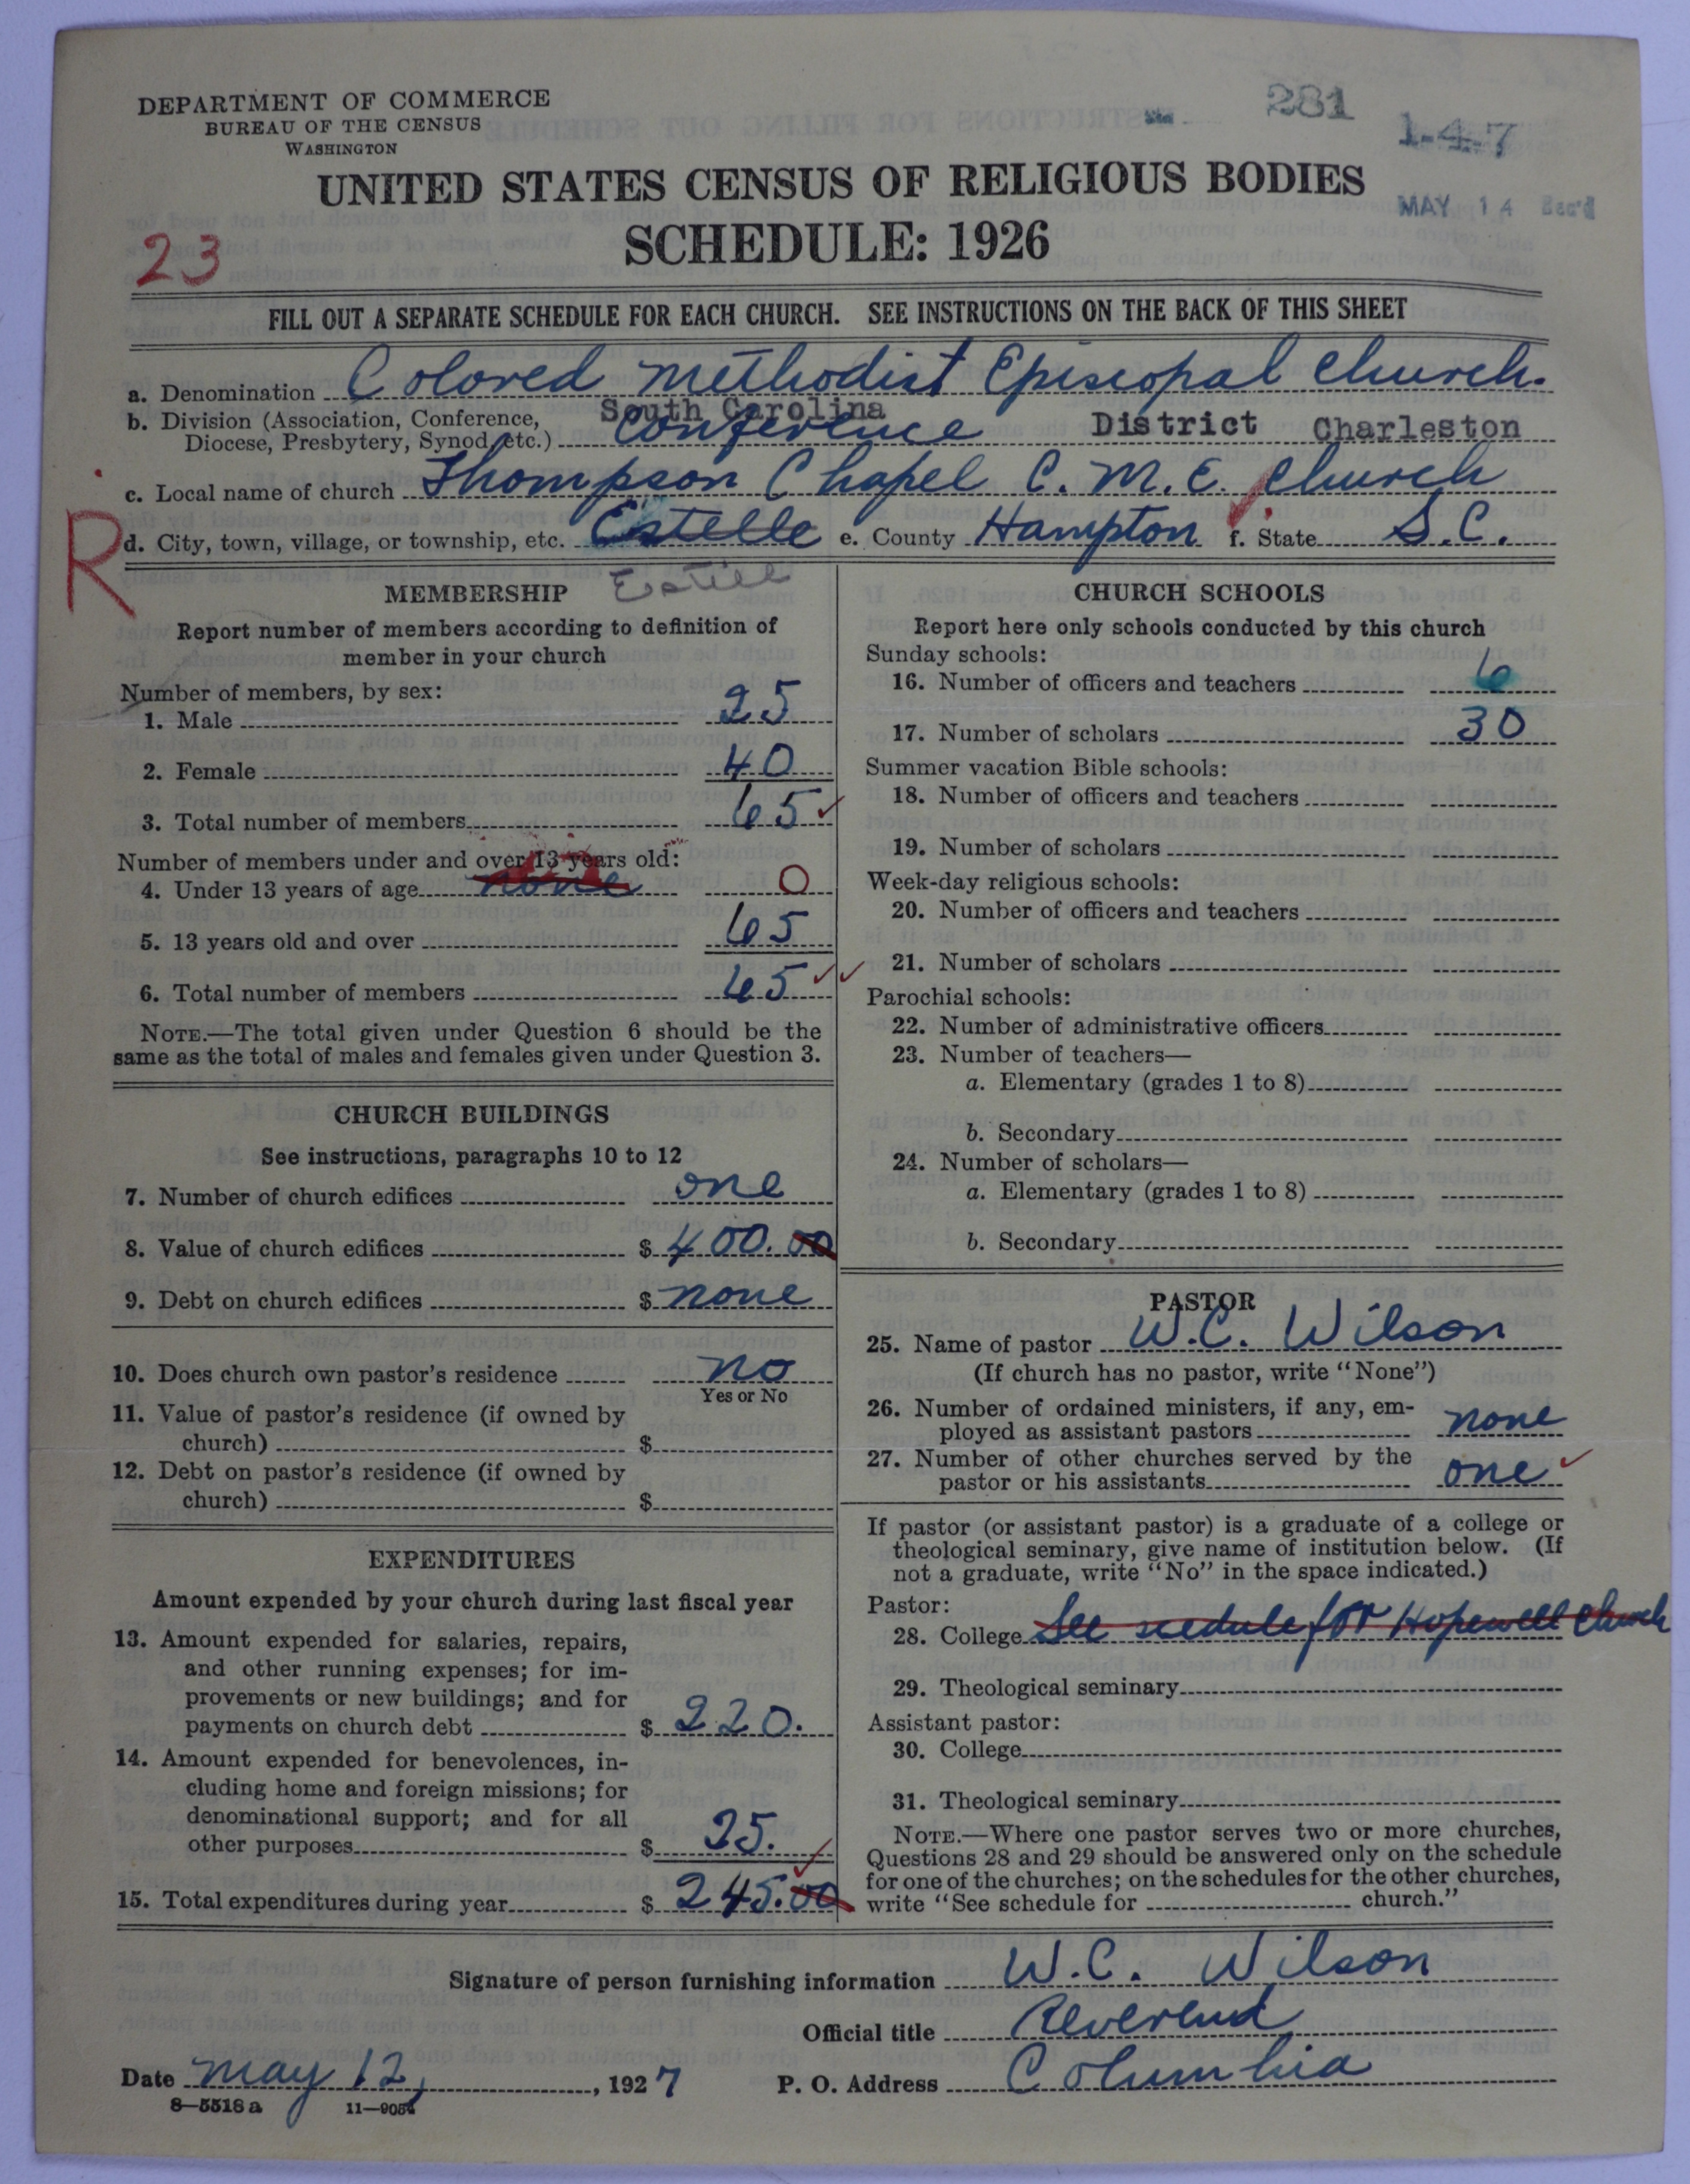 281
1-4-7
DEPARTMENT OF COMMERCE
BUREAU OF THE CENSUS
WASHINGTON
UNITED STATES CENSUS OF RELIGIOUS BODIES
MAY 14 Rec'd
SCHEDULE: 1926
23
FILL OUT A SEPARATE SCHEDULE FOR EACH CHURCH. SEE INSTRUCTIONS ON THE BACK OF THIS SHEET
a. Denomination Colored Methodist Episcopal Church.
b. Division (Association, Conference, South Carolina
Diocese, Presbytery, Synod, etc.) Conference District Charleston
c. Local name of church Thompson Chapel C. M. E. Church
R
d. City, town, village, or township, etc. Estelle e. County Hampton f. State S.C.
Estill
MEMBERSHIP
Report number of members according to definition of
member in your church
Number of members, by sex:
1. Male 25
2. Female 40
3. Total number of members 65 ✓
Number of members under and over 13 years old:
4. Under 13 years of age none 0
5. 13 years old and over 65
6. Total number of members 65 ✓✓
NOTE.—The total given under Question 6 should be the
same as the total of males and females given under Question 3.
CHURCH BUILDINGS
See instructions, paragraphs 10 to 12
7. Number of church edifices one
8. Value of church edifices $ 400.00
9. Debt on church edifices $ none
10. Does church own pastor's residence no
Yes or No
11. Value of pastor's residence (if owned by
church) $
12. Debt on pastor's residence (if owned by
church) $
EXPENDITURES
Amount expended by your church during last fiscal year
13. Amount expended for salaries, repairs,
and other running expenses; for im-
provements or new buildings; and for
payments on church debt $ 220.
14. Amount expended for benevolences, in-
cluding home and foreign missions; for
denominational support; and for all
other purposes $ 25.
15. Total expenditures during year $ 245.00
CHURCH SCHOOLS
Report here only schools conducted by this church
Sunday schools:
16. Number of officers and teachers 6
17. Number of scholars 30
Summer vacation Bible schools:
18. Number of officers and teachers
19. Number of scholars
Week-day religious schools:
20. Number of officers and teachers
21. Number of scholars
Parochial schools:
22. Number of administrative officers
23. Number of teachers—
a. Elementary (grades 1 to 8)
b. Secondary
24. Number of scholars—
a. Elementary (grades 1 to 8)
b. Secondary
PASTOR
25. Name of pastor W.C. Wilson
(If church has no pastor, write "None")
26. Number of ordained ministers, if any, em-
ployed as assistant pastors none
27. Number of other churches served by the
pastor or his assistants one ✓
If pastor (or assistant pastor) is a graduate of a college or
theological seminary, give name of institution below. (If
not a graduate, write "No" in the space indicated.)
Pastor:
28. College See scedule for Hopewell Church
29. Theological seminary
Assistant pastor:
30. College
31. Theological seminary
NOTE.—Where one pastor serves two or more churches,
Questions 28 and 29 should be answered only on the schedule
for one of the churches; on the schedules for the other churches,
write "See schedule for church."
Signature of person furnishing information W.C. Wilson
Official title Reverend
Date May 12, 1927 P. O. Address Columbia
8—5518 a 11—9054